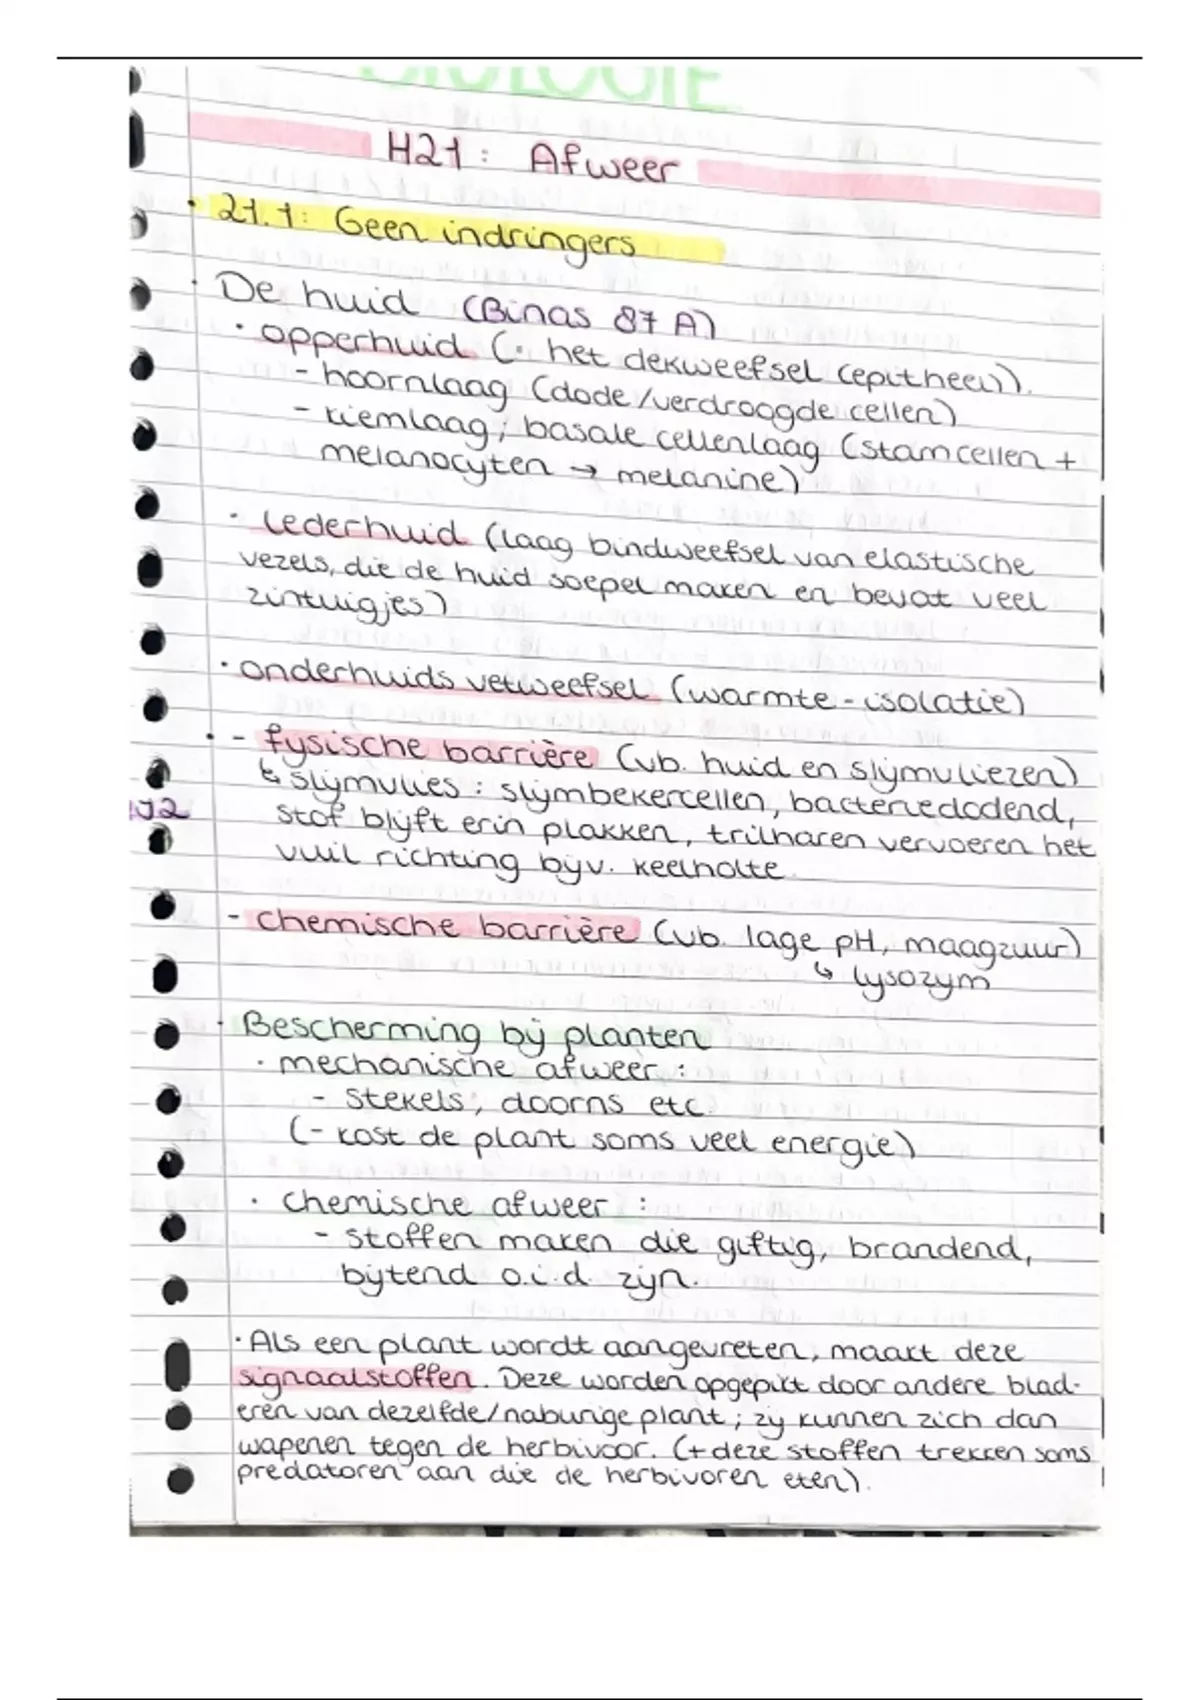 BIOLOGIE
H21: Afweer
• 21.1: Geen indringers
• De huid (Binas 87 A)
• opperhuid (: het dekweefsel (epitheel)).
- hoornlaag (dode/verdroogde cellen)
- kiemlaag; basale cellenlaag (stamcellen +
melanocyten → melanine)
• lederhuid (laag bindweefsel van elastische
vezels, die de huid soepel maken en bevat veel
zintuigjes)
• onderhuids vetweefsel (warmte-isolatie)
• - fysische barrière (vb. huid en slijmvliezen)
↳ slijmvlies: slijmbekercellen, bacteriedodend,
stof blijft erin plakken, trilharen vervoeren het
vuil richting bijv. keelholte
- chemische barrière (vb. lage pH, maagzuur)
↳ lysozym
• Bescherming bij planten
• mechanische afweer:
- stekels, doorns etc.
(- kost de plant soms veel energie)
• chemische afweer:
- stoffen maken die giftig, brandend,
bijtend o.i.d. zijn.
• Als een plant wordt aangevreten, maakt deze
signaalstoffen. Deze worden opgepikt door andere blad-
eren van dezelfde/naburige plant; zij kunnen zich dan
wapenen tegen de herbivoor. (+ deze stoffen trekken soms
predatoren aan die de herbivoren eten).